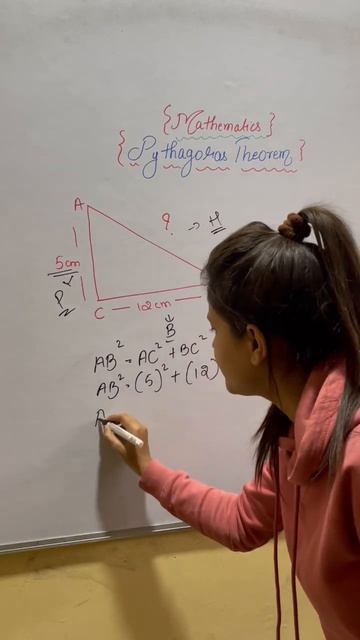 {Mathematics}
{Pythagoras Theorem}
A
? → H
5cm
P
C — 12cm —
↓
B
AB² = AC² + BC²
AB² = (5)² + (12)
A